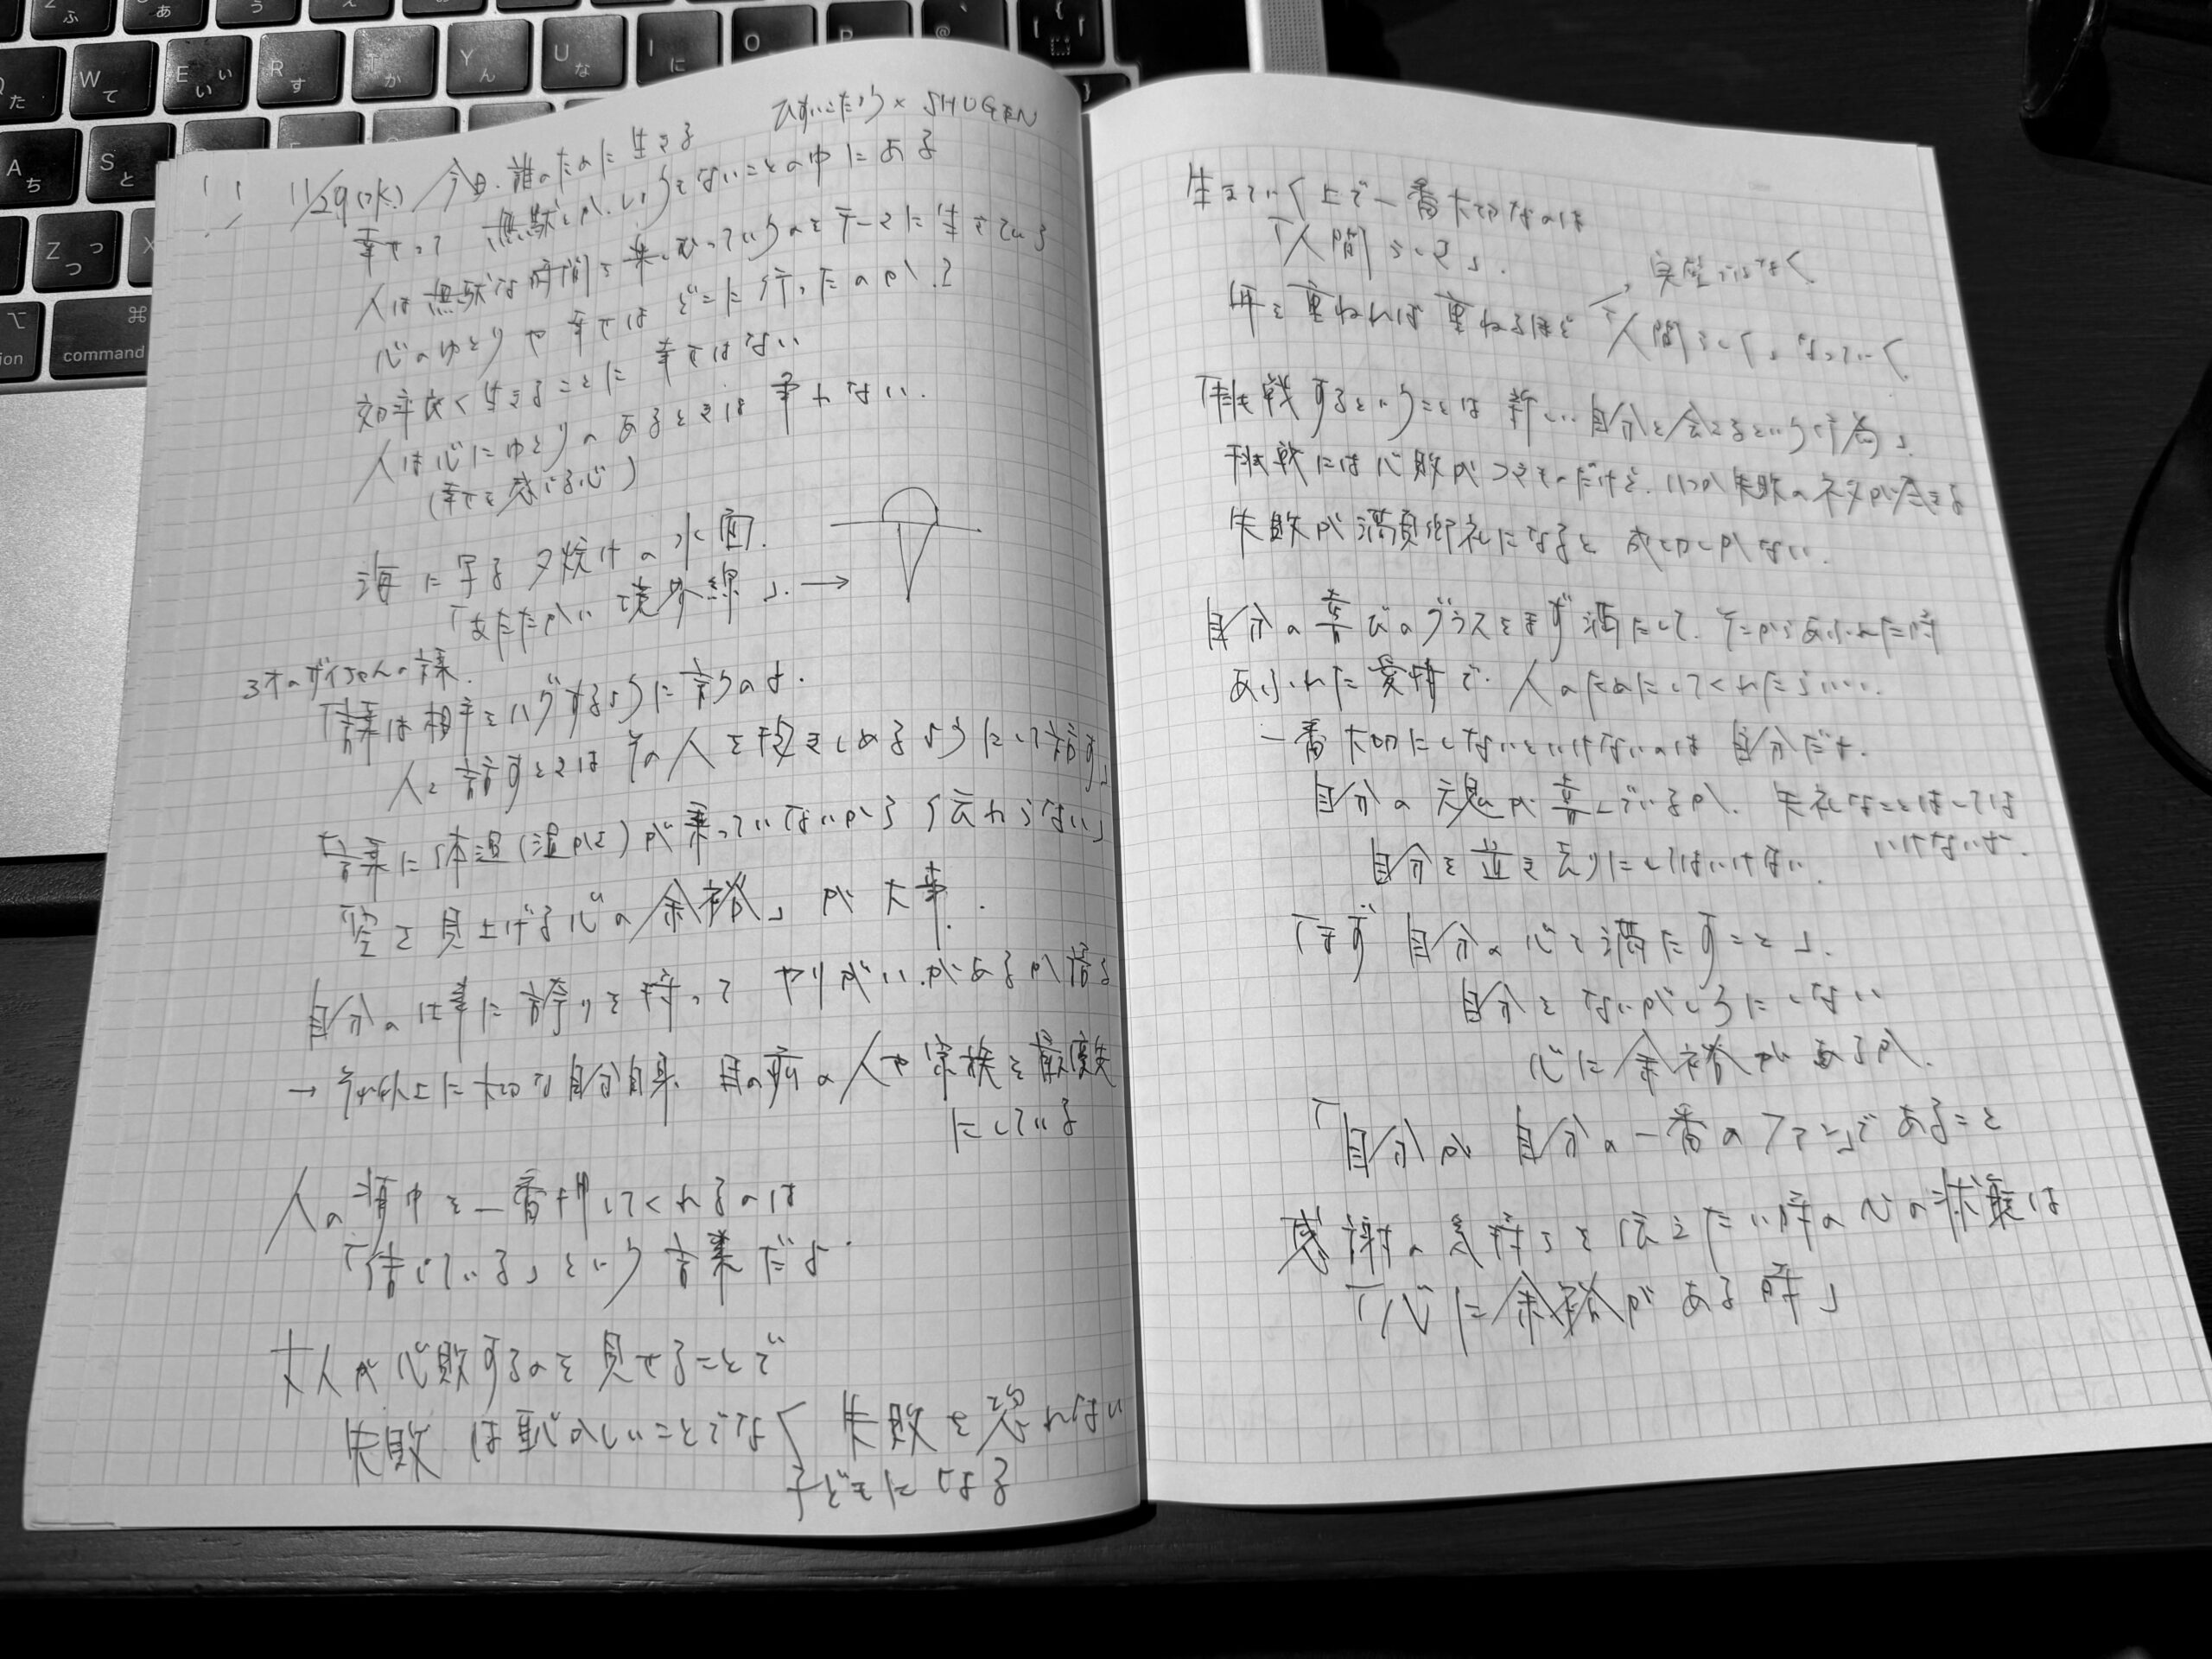 W
て
E
い
R
す
T
か
Y
ん
U
な
I
に
O
P
@
A
ち
S
と
Z
つ
X
⌥
⌘
command
ひすいこたろう × SHOGEN
11/29(水) 今日、誰のために生きる
幸せって 無駄とか、しょうもないことの中にある
人は無駄な時間を楽しむっていうのをテーマに生きている
心のゆとりや幸せはどこに行ったのか?
効率良く生きることに幸せはない
人は心にゆとりのあるときは争わない.
(幸せを感じる心)
海に写る夕焼けの水面.
「あたたかい境界線」. →
3才のザイちゃんの言葉.
「言葉は相手をハグするように言うのよ.
人と話すときはその人を抱きしめるようにして話す」
言葉に「体温(温かさ)が乗っていないから「伝わらない」
「空を見上げる心の余裕」が大事.
自分の仕事に誇りを持って やりがいがあるか語る
→ それ以上に大切な自分自身、目の前の人や家族を蔑ろ
にしている
人の背中を一番押してくれるのは
「信じている」という言葉だよ.
大人が失敗するのを見せることで
失敗は恥ずかしいことでなく 失敗を恐れない
子どもになる
生きていく上で一番大切なのは
「人間らしさ」.
年を重ねれば重ねるほど 「人間らしく」なっていく
→ 完璧ではなく
「挑戦するということは 新しい自分と会えるという行為」
挑戦には失敗がつきものだけど、いつか失敗のネタが尽きる
失敗が満員御礼になると 成功しかない.
自分の喜びのグラスをまず満たして、そこからあふれた時
あふれた愛情で 人のためにしてくれたらいい.
一番大切にしないといけないのは 自分だよ.
自分の魂が喜んでいるか、失礼なことはしては
いけないよ.
自分を置き去りにしてはいけない.
「まず 自分の心を満たすこと」.
自分をないがしろにしない
心に余裕があるか.
「自分が 自分の一番のファン」であること
感謝の気持ちを伝えたい時の心の状態は
「心に余裕がある時」